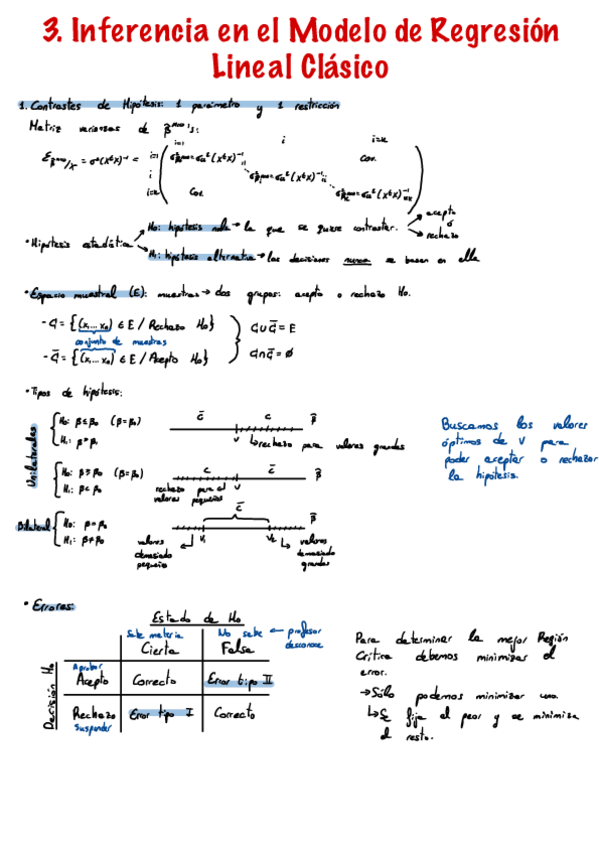 3. Inferencia en el Modelo de Regresión
Lineal Clásico
1. Contrastes de Hipótesis: 1 parámetro y 1 restricción
Matriz varianzas de β^MCO's:
i=1 i i=k
Σβ^MCO/X = σ²(XᵗX)⁻¹ =
i=1
i
i=k
Cov.
Cov
• Hipótesis estadística
H₀: hipótesis nula → la que se quiere contrastar.
acepto
ó
rechazo
H₁: hipótesis alternativa → las decisiones nunca se basan en ella
• Espacio muestral (E): muestras → dos grupos: acepto o rechazo H₀.
- C = {(x₁...xₙ) ∈ E / Rechazo H₀}
conjunto de muestras
- C̄ = {(x₁...xₙ) ∈ E / Acepto H₀}
C∪C̄ = E
C∩C̄ = ∅
• Tipos de hipótesis:
Unilaterales
H₀: β≤β₀ (β=β₀)
H₁: β>β₀
C̄ C β̂
V
↳ rechazo para valores grandes
H₀: β≥β₀ (β=β₀)
H₁: β<β₀
C C̄ β̂
V
rechazo para el
valores pequeños
Bilateral
H₀: β=β₀
H₁: β≠β₀
C̄ β̂
V₁ V₂
valores
demasiado
pequeños
valores
demasiado
grandes
Buscamos los valores
óptimos de V para
poder aceptar o rechazar
la hipótesis.
• Errores:
Estado de H₀
Sabe materia No sabe ← profesor
desconoce
Cierta Falsa
Decisión H₀
Aprobar
Acepto Correcto Error tipo II
Rechazo Error tipo I Correcto
Suspender
Para determinar la mejor Región
Crítica debemos minimizar el
error.
→ Sólo podemos minimizar uno.
↳ Se fija el peor y se minimiza
el resto.